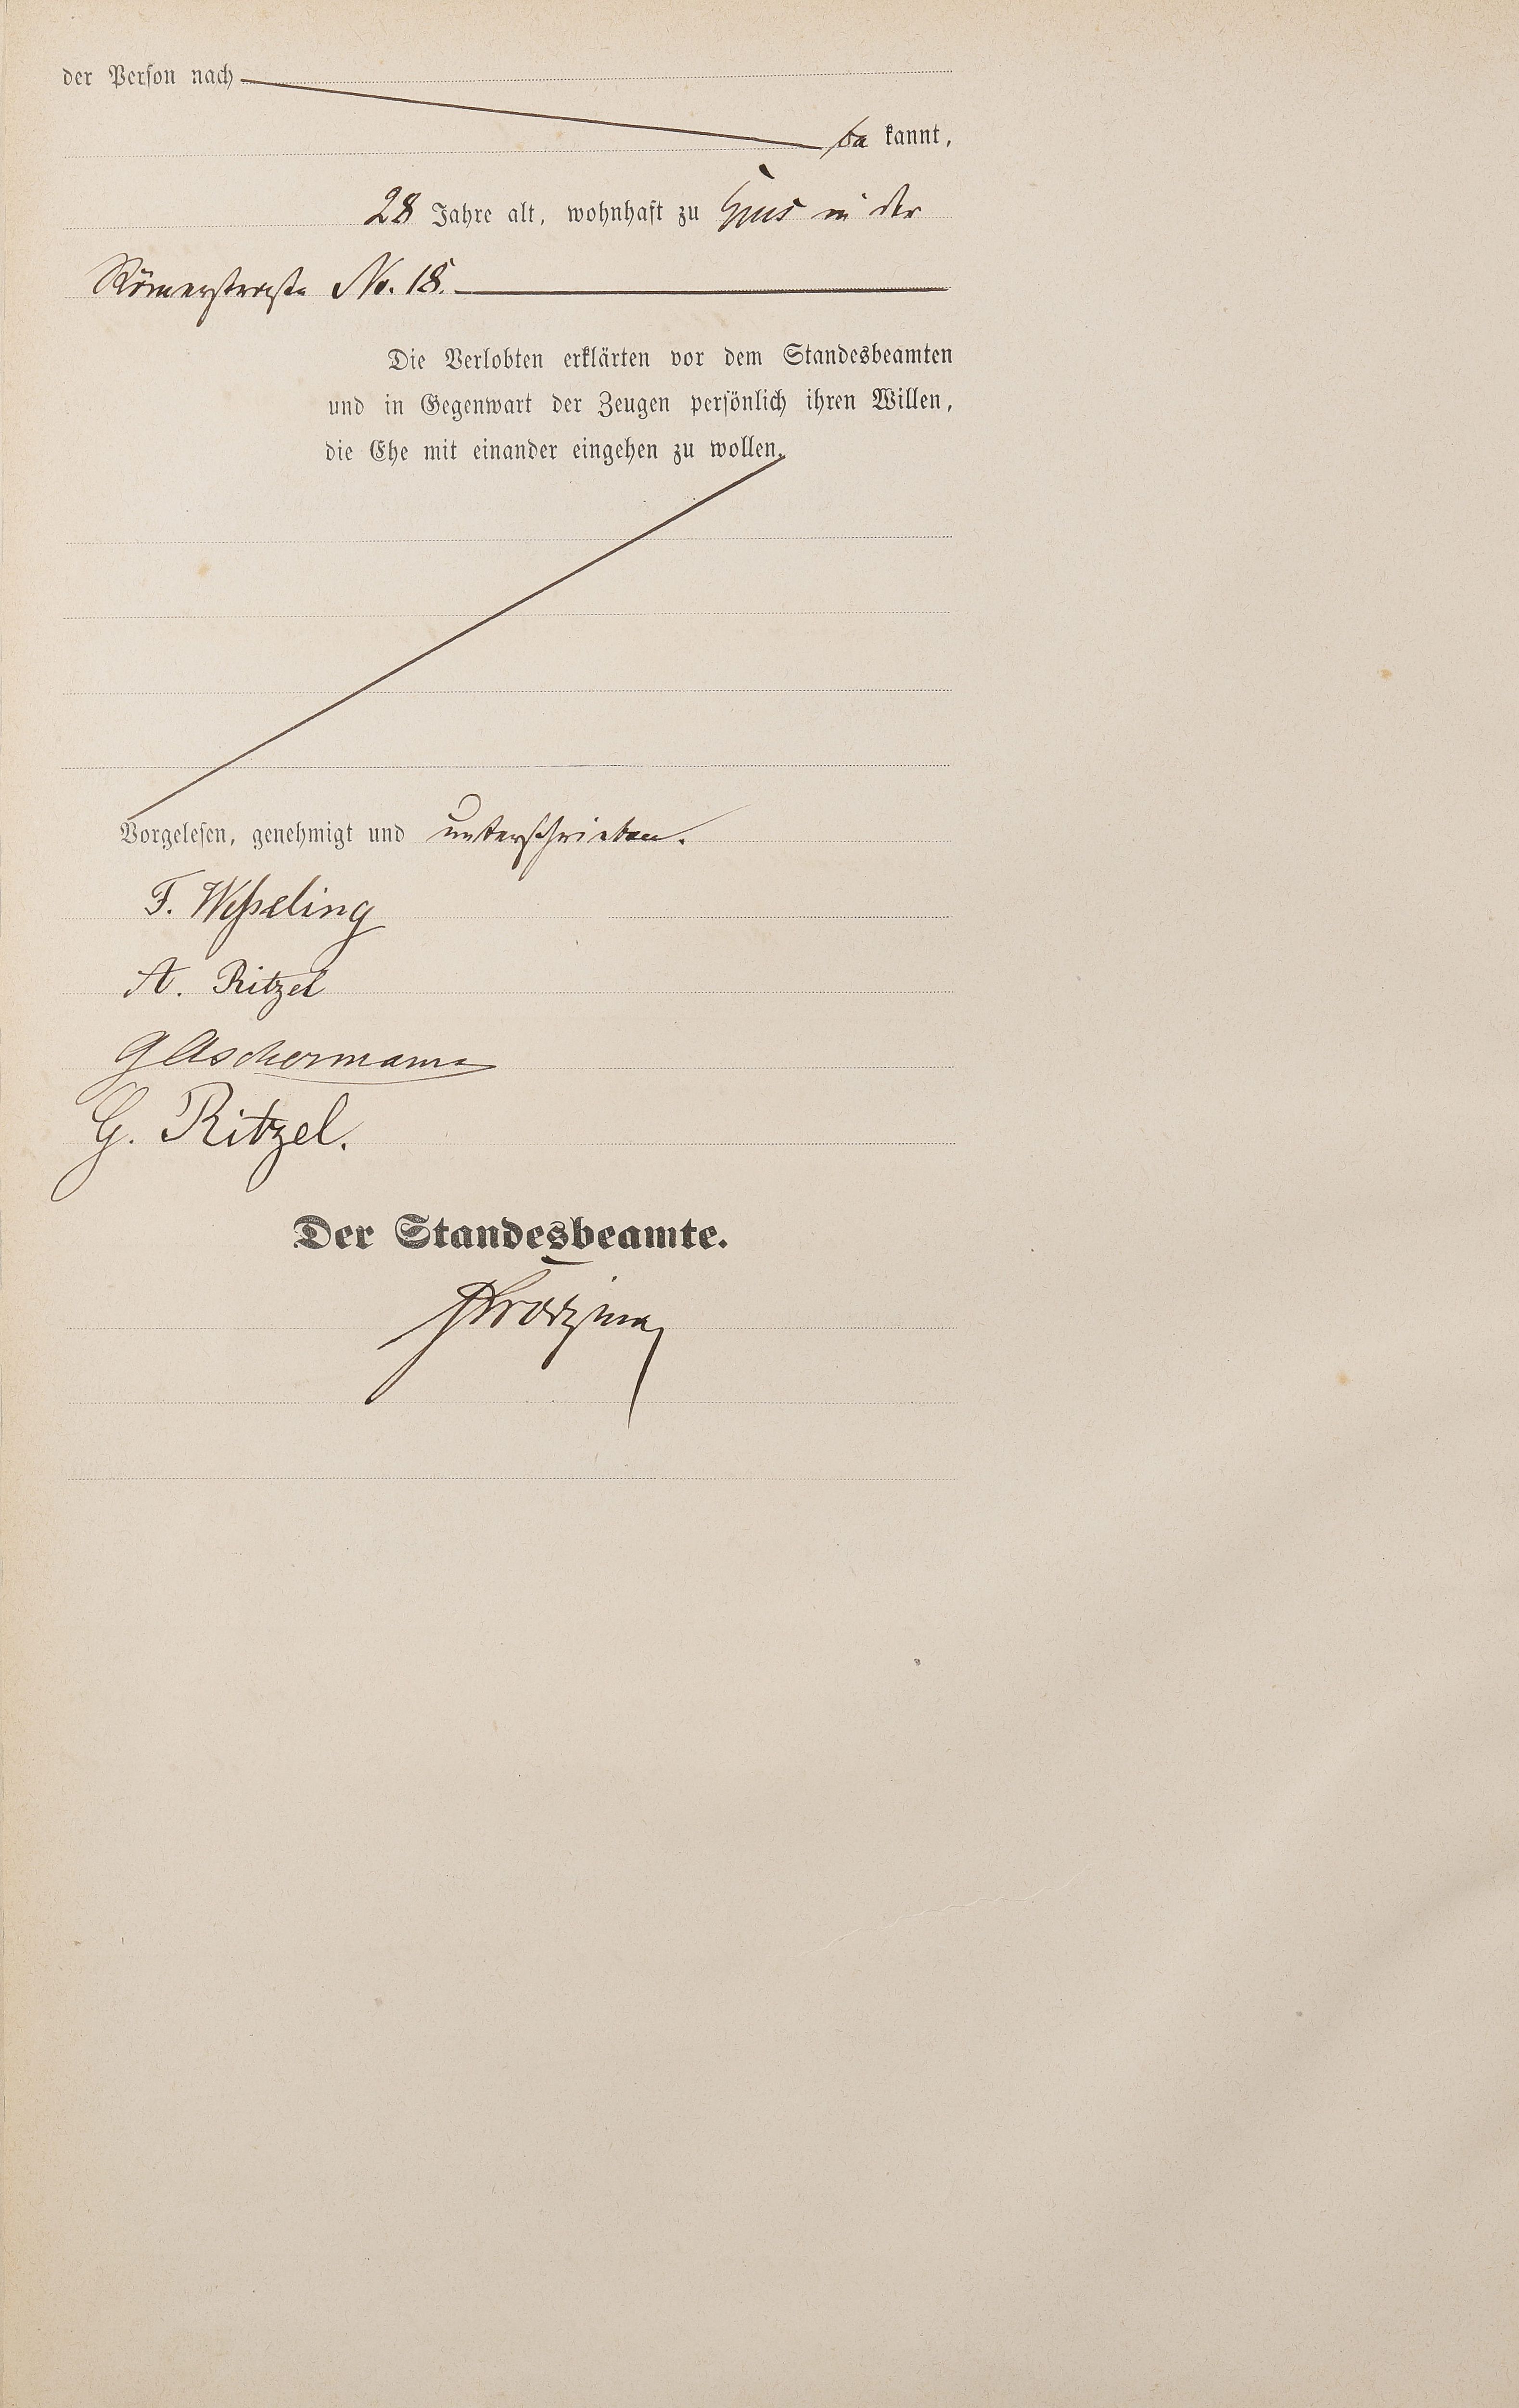 der Person nach
be kannt,
28 Jahre alt, wohnhaft zu Ems in der
Römerstraße No. 18.
Die Verlobten erklärten vor dem Standesbeamten
und in Gegenwart der Zeugen persönlich ihren Willen,
die Ehe mit einander eingehen zu wollen.
Vorgelesen, genehmigt und unterschrieben.
F. Weßeling
A. Ritzel
G Aschermann
G. Ritzel.
Der Standesbeamte.